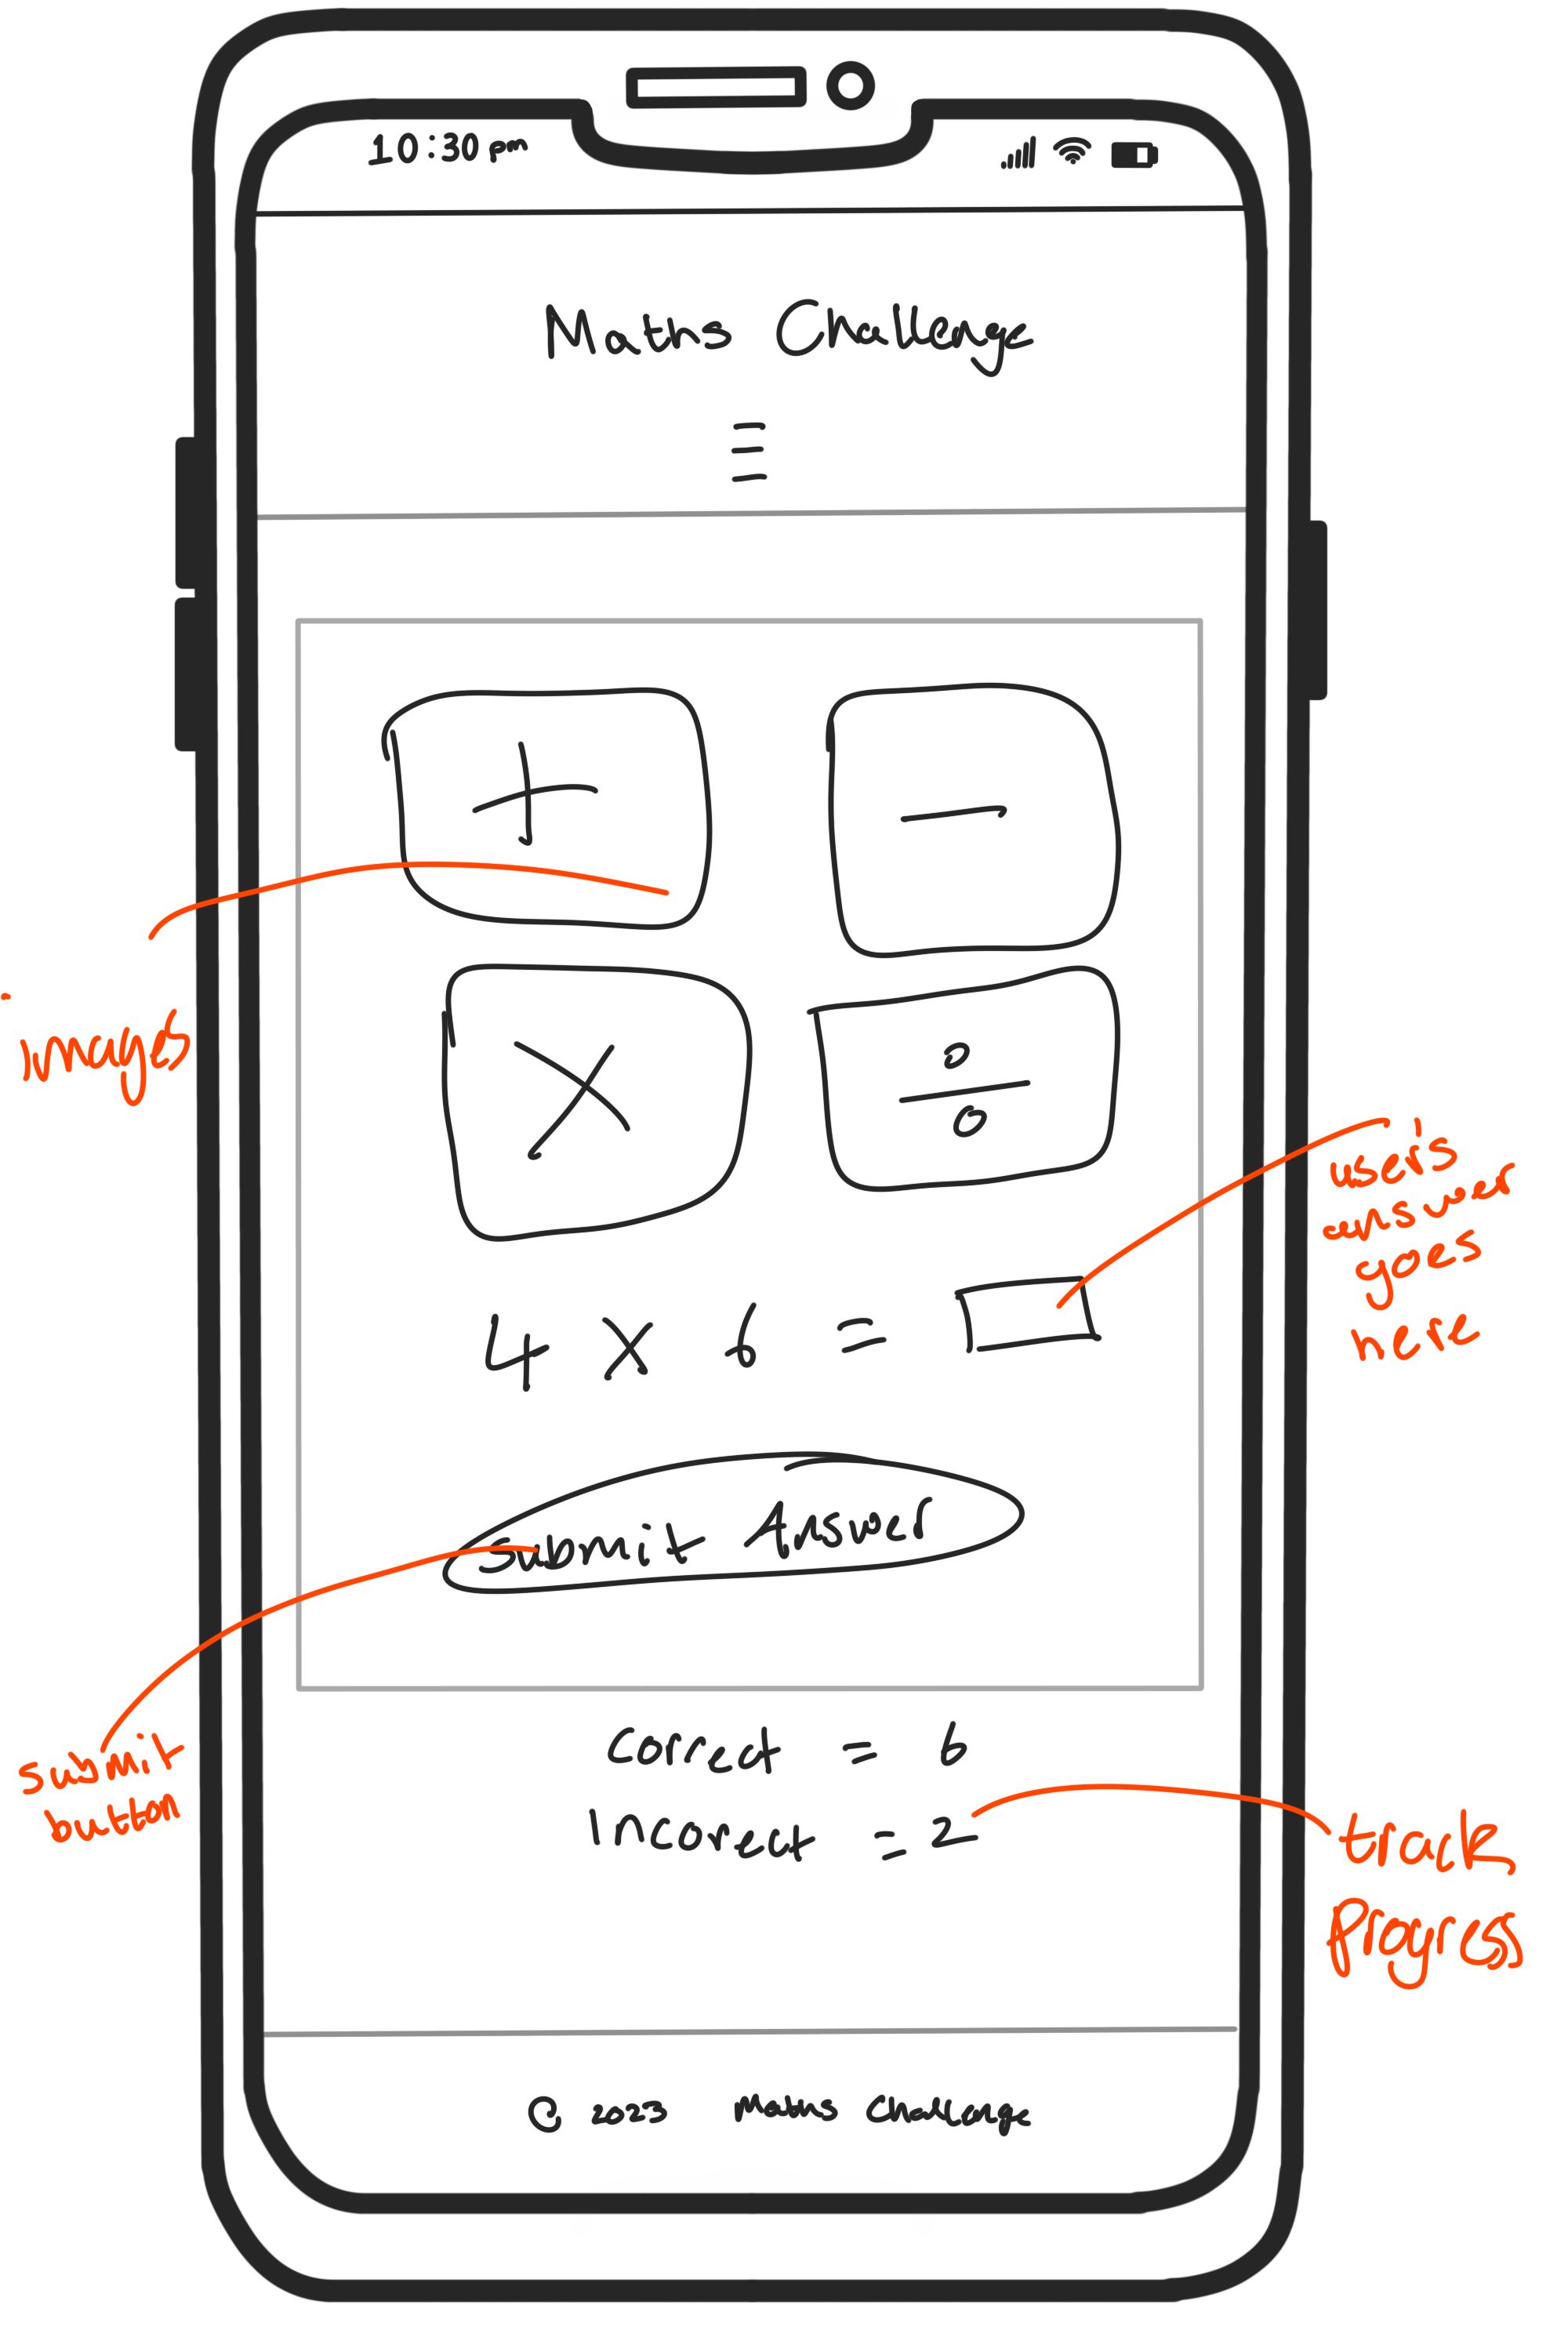 10:30 pm
Maths Challenge
+
−
×
÷
images
user's
answer
goes
here
4 × 6 =
Submit Answer
submit
button
Correct = 6
Incorrect = 2
track
Progress
© 2023 Maths Challenge